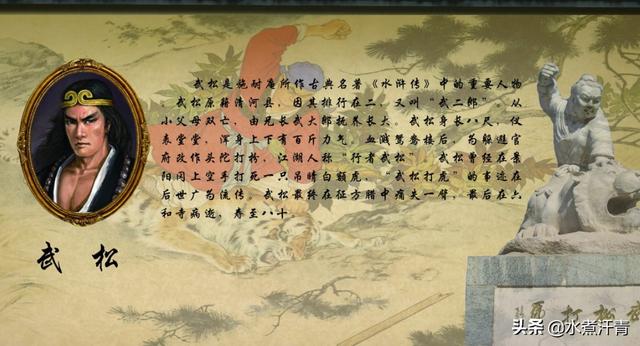 武松是施耐庵所作古典名著《水浒传》中的重要人物
。武松原籍清河县，因其排行在二，又叫“武二郎”。从
小父母双亡，由兄长武大郎抚养长大。武松身长八尺，仪
表堂堂，浑身上下有百斤力气。血溅鸳鸯楼后，为躲避官
府改作头陀打扮，江湖人称“行者武松”。武松曾经在景
阳冈上空手打死一只吊睛白额虎，“武松打虎”的事迹在
后世广为流传。武松最终在征方腊中痛失一臂，最后在六
和寺病逝，寿至八十
武松
武松打虎
头条 @水煮汗青